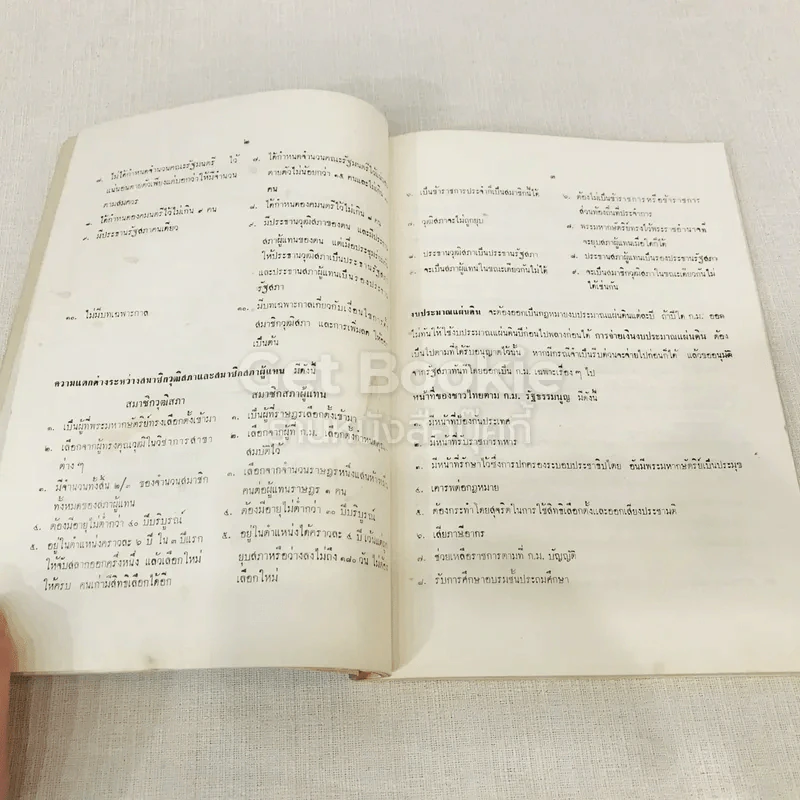 ๒
๗. ไม่ได้กำหนดจำนวนคณะรัฐมนตรี ไว้
แน่นอนตายตัวเพียงแต่บอกว่าให้มีจำนวน
ตามสมควร
๘. ได้กำหนดองคมนตรีไว้ไม่เกิน ๙ คน
๙. มีประธานรัฐสภาคนเดียว
๑๐. ไม่มีบทเฉพาะกาล
๗. ได้กำหนดจำนวนคณะรัฐมนตรีไว้แน่นอน
ตายตัวไม่น้อยกว่า ๑๕ คนและไม่เกิน
คน
๘. ได้กำหนดองคมนตรีไว้ไม่เกิน ๘ คน
๙. มีประธานวุฒิสภาของตน และมีประธาน
สภาผู้แทนของตน แต่เมื่อประชุมร่วมกัน
ให้ประธานวุฒิสภาเป็นประธานรัฐสภา
และประธานสภาผู้แทนเป็นรองประธาน
รัฐสภา
๑๐. มีบทเฉพาะกาลเกี่ยวกับเงื่อนไขของ
สมาชิกวุฒิสภา และการเพิ่มลด
เป็นต้น
ความแตกต่างระหว่างสมาชิกวุฒิสภาและสมาชิกสภาผู้แทน มีดังนี้
สมาชิกวุฒิสภา
๑. เป็นผู้ที่พระมหากษัตริย์ทรงเลือกตั้งเข้ามา
๒. เลือกจากผู้ทรงคุณวุฒิในวิชาการสาขา
ต่าง ๆ
๓. มีจำนวนทั้งสิ้น ๒/๓ ของจำนวนสมาชิก
ทั้งหมดของสภาผู้แทน
๔. ต้องมีอายุไม่ต่ำกว่า ๔๐ ปีบริบูรณ์
๕. อยู่ในตำแหน่งคราวละ ๖ ปี ใน ๓ ปีแรก
ให้จับสลากออกครึ่งหนึ่ง แล้วเลือกใหม่
ให้ครบ คนเก่ามีสิทธิเลือกได้อีก
สมาชิกสภาผู้แทน
๑. เป็นผู้ที่ราษฎรเลือกตั้งเข้ามา
๒. เลือกจากผู้ที่ ก.ม. เลือกตั้งกำหนดคุณ
สมบัติไว้
๓. เลือกจากจำนวนราษฎรหนึ่งแสนห้าหมื่น
คนต่อผู้แทนราษฎร ๑ คน
๔. ต้องมีอายุไม่ต่ำกว่า ๓๐ ปีบริบูรณ์
๕. อยู่ในตำแหน่งได้คราวละ ๔ ปี เว้นแต่
ยุบสภาหรือว่างลงไม่ถึง ๑๘๐ วัน ไม่ต้อง
เลือกใหม่
๓
๖. เป็นข้าราชการประจำก็เป็นสมาชิกนี้ได้
๗. วุฒิสภาจะไม่ถูกยุบ
๘. ประธานวุฒิสภาเป็นประธานรัฐสภา
๙. จะเป็นสภาผู้แทนในขณะเดียวกันไม่ได้
๖. ต้องไม่เป็นข้าราชการหรือข้าราชการ
ส่วนท้องถิ่นที่ประจำการ
๗. พระมหากษัตริย์ทรงไว้พระราชอำนาจที่
จะยุบสภาผู้แทนเมื่อใดก็ได้
๘. ประธานสภาผู้แทนเป็นรองประธานรัฐสภา
๙. จะเป็นสมาชิกวุฒิสภาในขณะเดียวกันไม่
ได้เช่นกัน
งบประมาณแผ่นดิน จะต้องออกเป็นกฎหมายงบประมาณแผ่นดินแต่ละปี ถ้าปีใด ก.ม. ออก
ไม่ทันให้ใช้งบประมาณแผ่นดินปีก่อนไปพลางก่อนได้ การจ่ายเงินงบประมาณแผ่นดิน ต้อง
เป็นไปตามที่ได้รับอนุญาตไว้นั้น หากมีกรณีจำเป็นรีบด่วนจะจ่ายไปก่อนก็ได้ แล้วขออนุมัติ
จากรัฐสภาทันทีโดยออกเป็น ก.ม. เฉพาะเรื่อง ๆ ไป
หน้าที่ของชาวไทยตาม ก.ม. รัฐธรรมนูญ มีดังนี้
๑. มีหน้าที่ป้องกันประเทศ
๒. มีหน้าที่รับราชการทหาร
๓. มีหน้าที่รักษาไว้ซึ่งการปกครองระบอบประชาธิปไตย อันมีพระมหากษัตริย์เป็นประมุข
๔. เคารพต่อกฎหมาย
๕. ต้องกระทำโดยสุจริตในการใช้สิทธิเลือกตั้งและออกเสียงประชามติ
๖. เสียภาษีอากร
๗. ช่วยเหลือราชการตามที่ ก.ม. บัญญัติ
๘. รับการศึกษาอบรมชั้นประถมศึกษา
Get Bookie
ค้นหนังสือได้ที่นี่